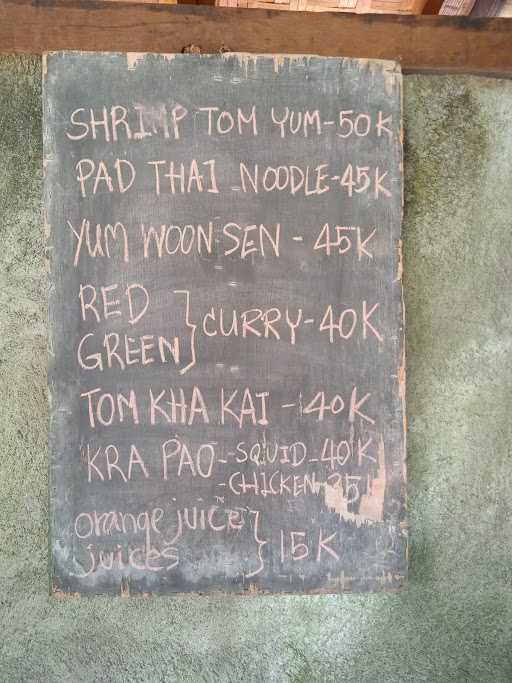 SHRIMP TOM YUM-50K
PAD THAI NOODLE-45K
YUM WOON SEN - 45K
RED
GREEN } CURRY-40K
TOM KHA KAI - 40K
KRA PAO - SQUID - 40K
- CHICKEN 35
orange juice
juices } 15K